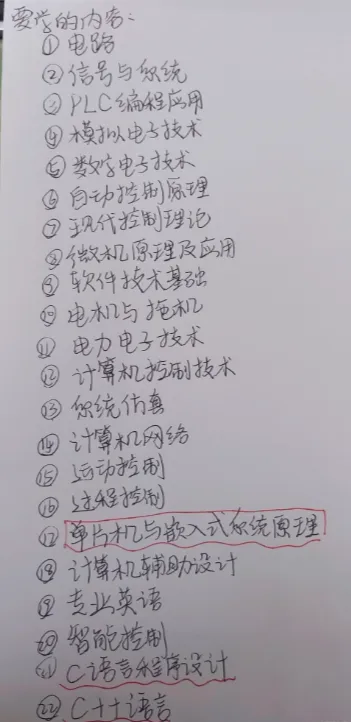 要学的内容:
① 电路
② 信号与系统
③ PLC编程应用
④ 模拟电子技术
⑤ 数字电子技术
⑥ 自动控制原理
⑦ 现代控制理论
⑧ 微机原理及应用
⑨ 软件技术基础
⑩ 电机与拖机
⑪ 电力电子技术
⑫ 计算机控制技术
⑬ 系统仿真
⑭ 计算机网络
⑮ 运动控制
⑯ 过程控制
⑰ 单片机与嵌入式系统原理
⑱ 计算机辅助设计
⑲ 专业英语
⑳ 智能控制
㉑ C语言程序设计
㉒ C++语言